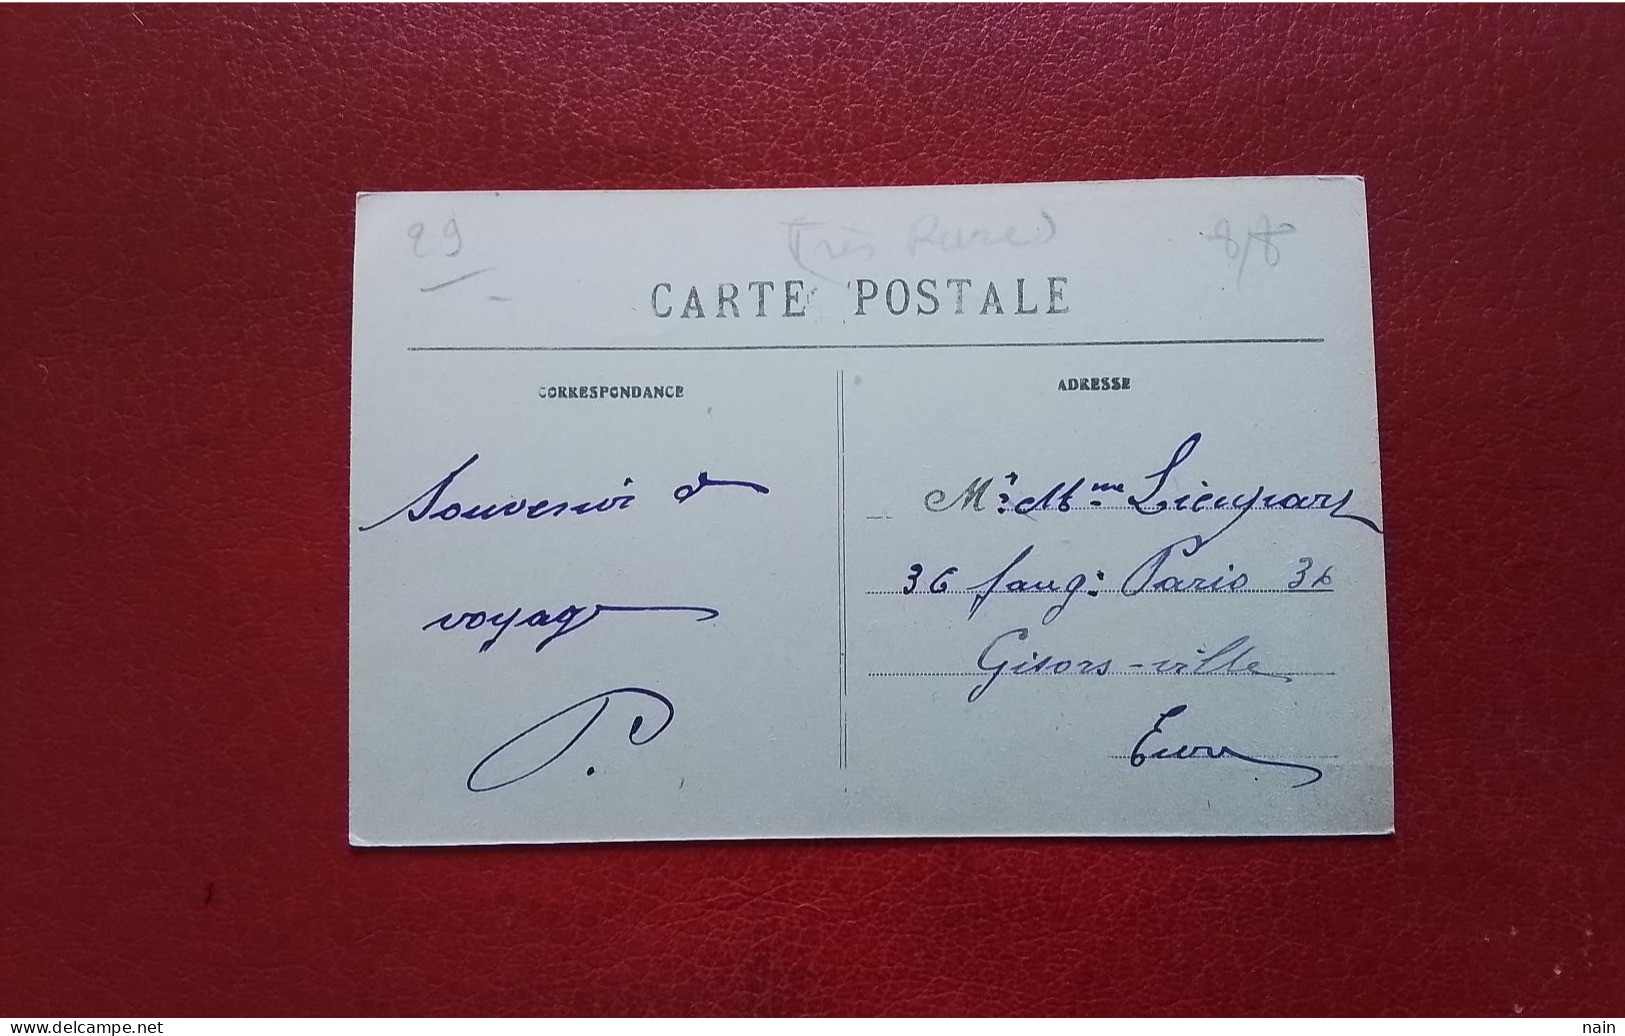 29
Très Rare
CARTE POSTALE
CORRESPONDANCE
ADRESSE
Souvenir de
voyage
P.
Mr & Mme
36 faug: Paris 36
Gisors-ville
Eure
www.delcampe.net
nain